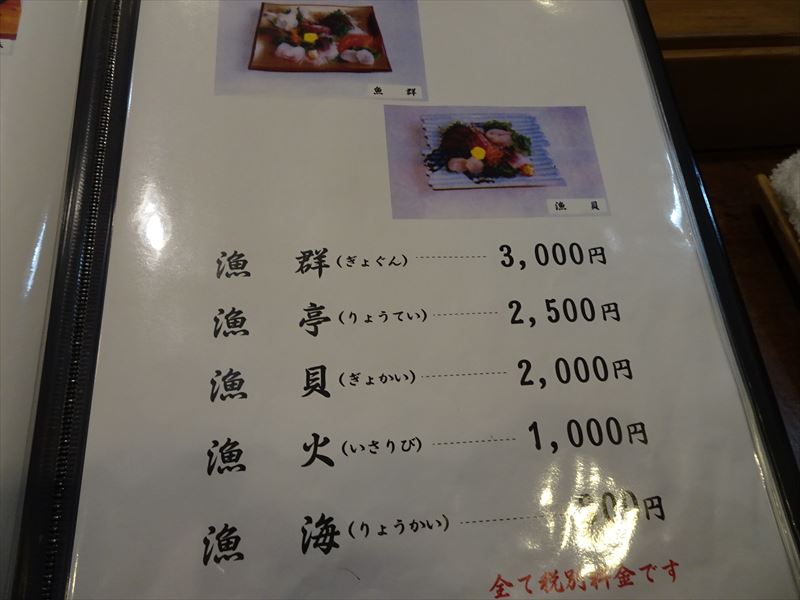 魚 群
漁 貝
漁 群(ぎょぐん) 3,000円
漁 亭(りょうてい) 2,500円
漁 貝(ぎょかい) 2,000円
漁 火(いさりび) 1,000円
漁 海(りょうかい) 00円
全て税別料金です